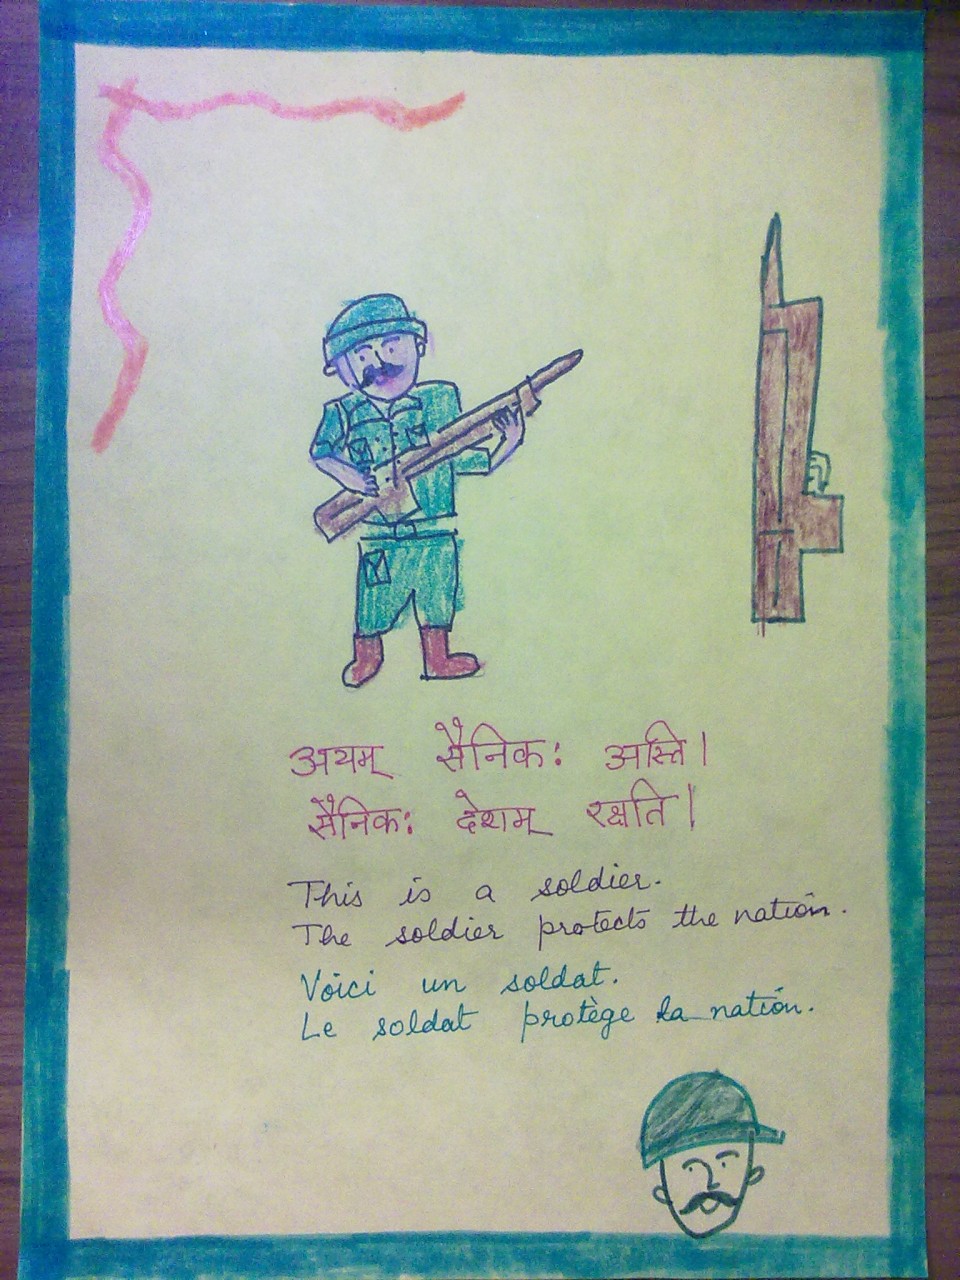 अयम् सैनिकः अस्ति।
सैनिकः देशम् रक्षति।
This is a soldier.
The soldier protects the nation.
Voici un soldat.
Le soldat protège la nation.